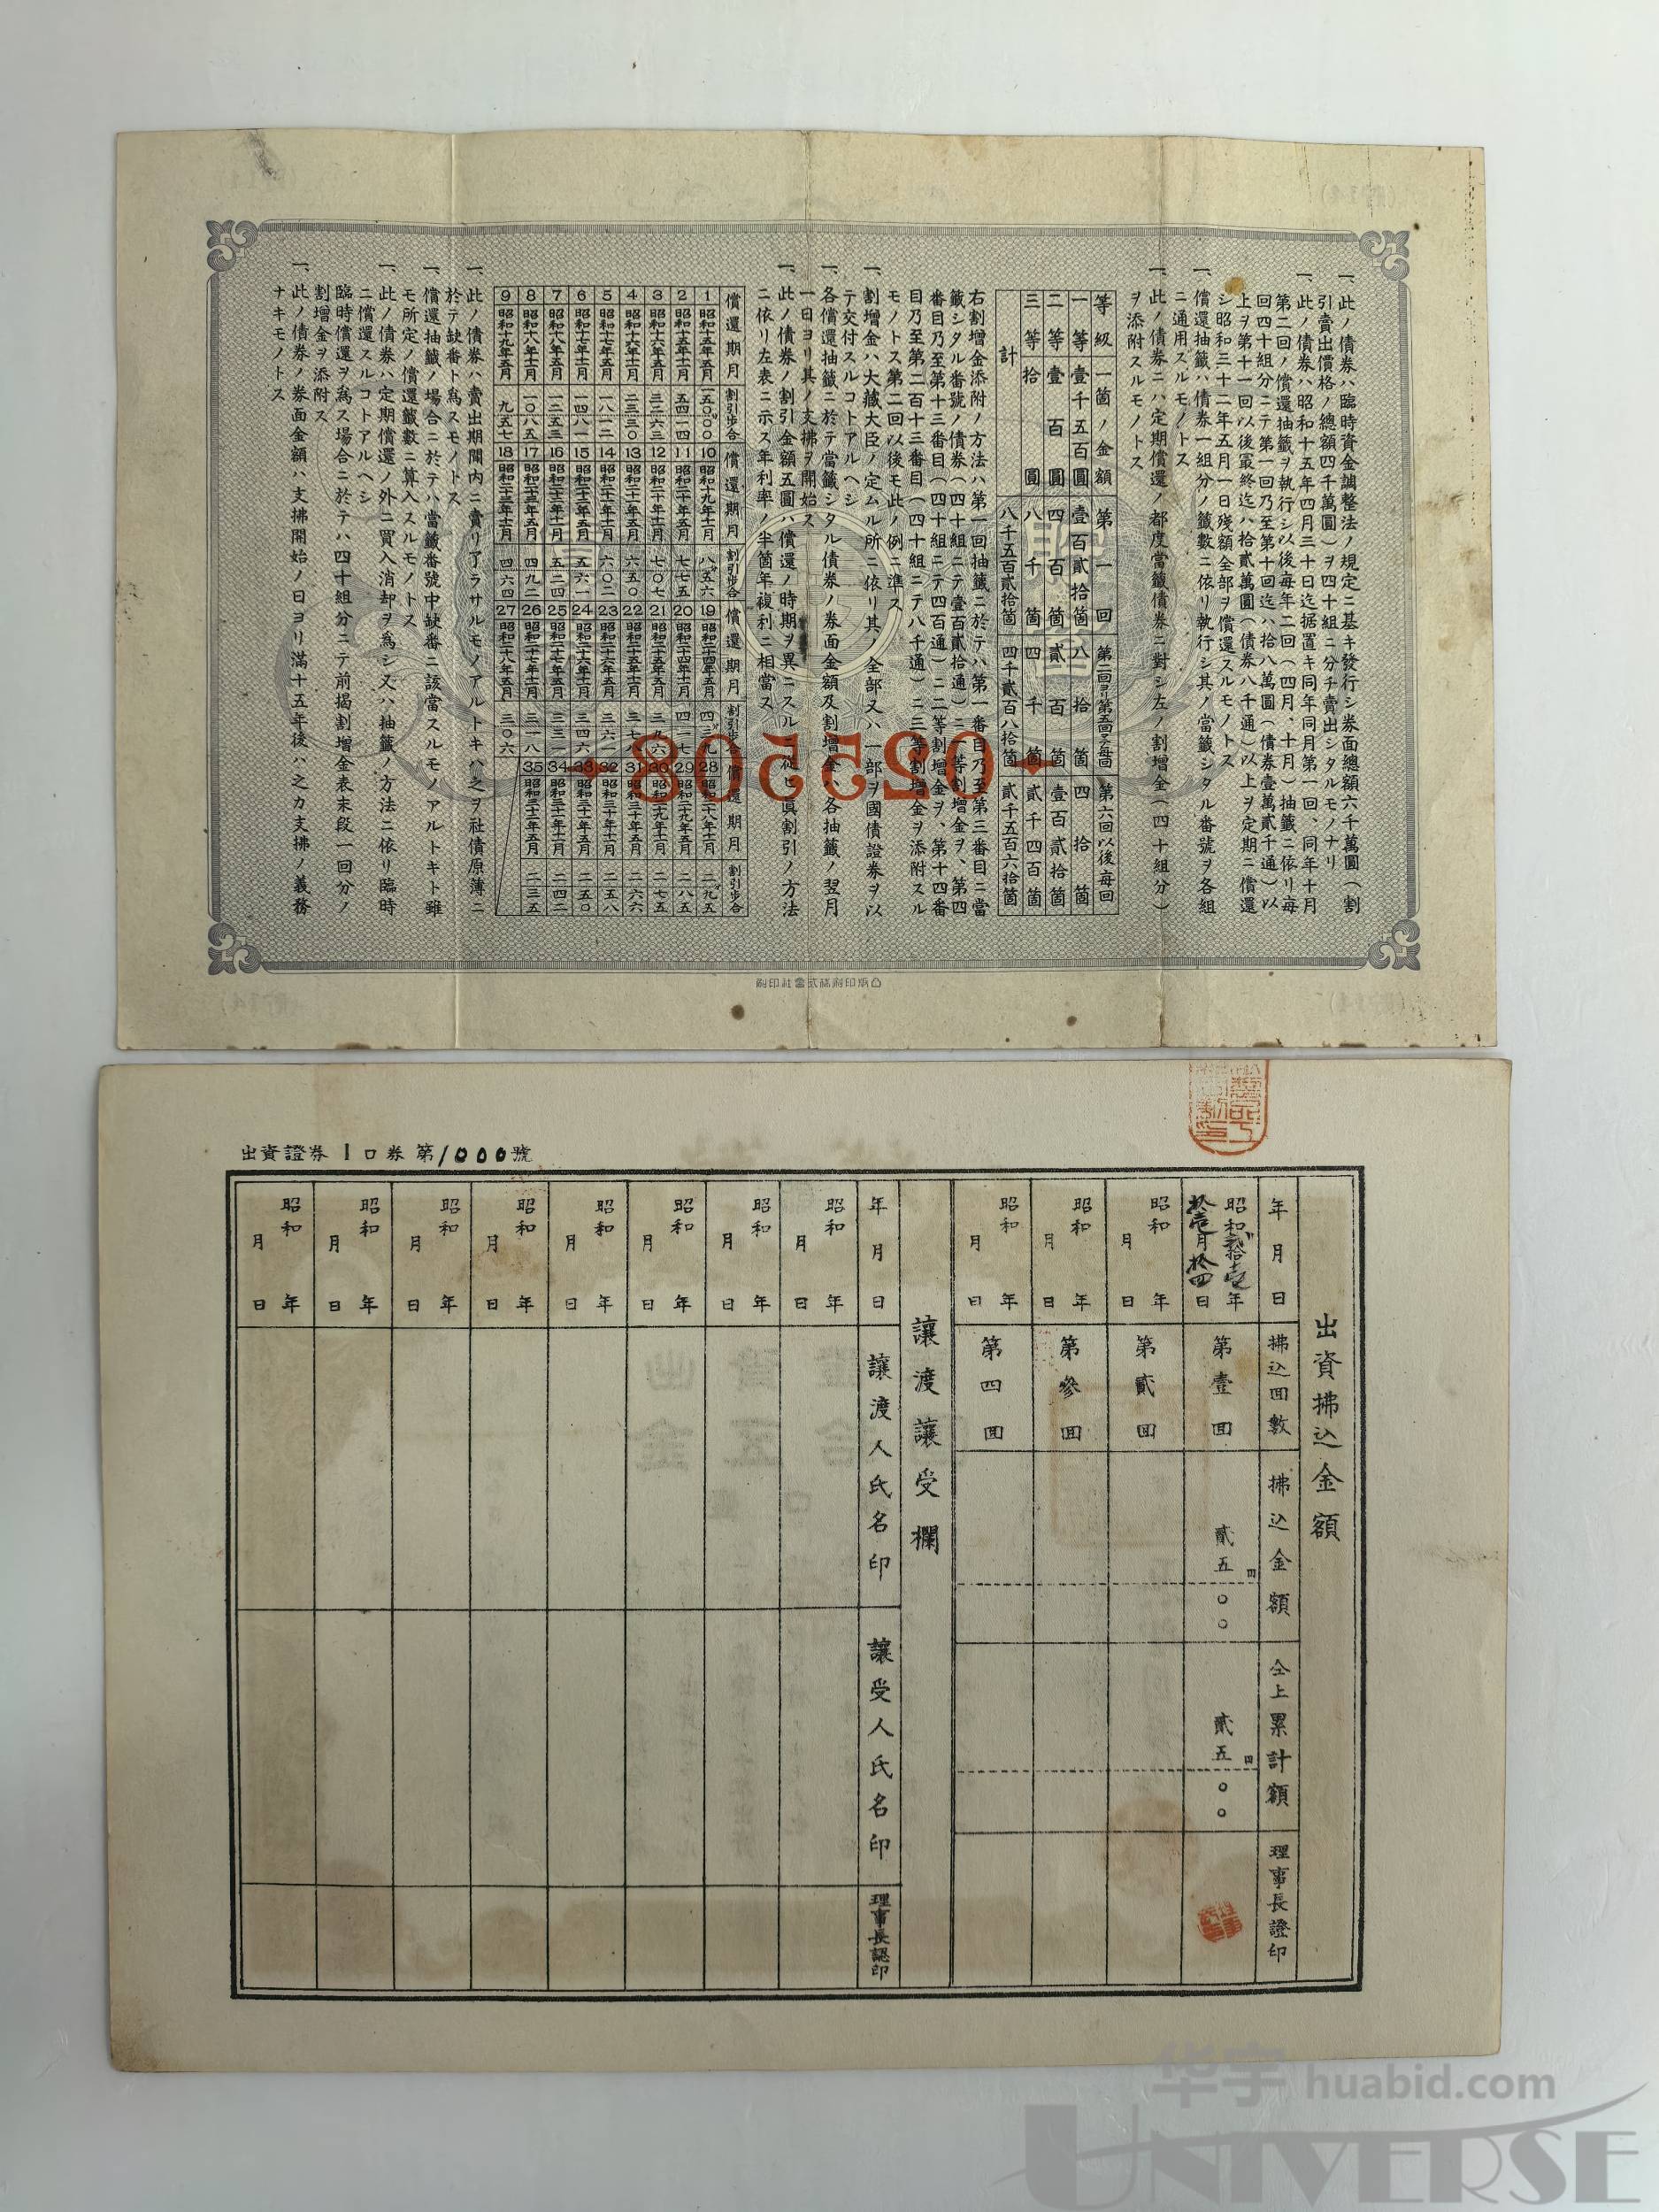 一、此ノ債券ハ臨時資金調整法ノ規定ニ基キ發行シ券面總額六千萬圓(割
引賣出價格ノ總額四千萬圓)ヲ四十組ニ分チ賣出シタルモノナリ
一、此ノ債券ハ昭和十五年四月三十日迄据置キ同年同月第一回、同年十月
第二回ノ償還抽籤ヲ執行シ以後每年二回(四月、十月)抽籤ニ依リ每
回四十組分ニテ第一回乃至第十回迄ハ拾八萬圓(債券壹萬貳千通)以
上ヲ第十一回以後最終迄ハ拾貳萬圓(債券八千通)以上ヲ定期ニ償還
シ昭和三十二年五月一日殘額全部ヲ償還スルモノトス
一、償還抽籤ハ債券一組分ノ籤數ニ依リ執行シ其ノ當籤シタル番號ヲ各組
ニ通用スルモノトス
一、此ノ債券ニハ定期償還ノ都度當籤債券ニ對シ左ノ割增金(四十組分)
ヲ添附スルモノトス
等級 一箇ノ金額 第一回 第二回ヨリ第五回マデ每回 第六回以後每回
一等 壹千五百圓 壹百貳拾箇 八拾箇 四拾箇
二等 壹百圓 四百箇 貳百箇 壹百貳拾箇
三等 拾圓 八千箇 四千箇 貳千四百箇
計 八千五百貳拾箇 四千貳百八拾箇 貳千五百六拾箇
右割增金添附ノ方法ハ第一回抽籤ニ於テハ第一番目乃至第三番目ニ當
籤シタル番號ノ債券(四十組ニテ壹百貳拾通)ニ一等割增金ヲ、第四
番目乃至第十三番目(四十組ニテ四百通)ニ二等割增金ヲ、第十四番
目乃至第二百十三番目(四十組ニテ八千通)ニ三等割增金ヲ添附スル
モノトス第二回以後モ此ノ例ニ準ス
一、割增金ハ大藏大臣ノ定ムル所ニ依リ其ノ全部又ハ一部ヲ國債證券ヲ以
テ交付スルコトアルヘシ
一、各償還抽籤ニ於テ當籤シタル債券ノ券面金額及割增金ハ各抽籤ノ翌月
一日ヨリ其ノ支拂ヲ開始ス
一、此ノ債券ノ割引金額五圓ハ償還ノ時期ヲ異ニスルニ從ヒ眞割引ノ方法
ニ依リ左表ニ示ス年利率ノ半箇年複利ニ相當ス
償還期月 割引步合 償還期月 割引步合 償還期月 割引步合 償還期月 割引步合
1 昭和十五年五月 10 昭和十九年十一月 八、五六 19 昭和二十四年五月 四、三九 28 昭和二十八年十一月 二、九五
2 昭和十五年十一月 五四一四 11 昭和二十年五月 七七五 20 昭和二十四年十一月 四一七 29 昭和二十九年五月 二八五
3 昭和十六年五月 三三六三 12 昭和二十年十一月 七〇七 21 昭和二十五年五月 三九六 30 昭和二十九年十一月 二七五
4 昭和十六年十一月 二三三〇 13 昭和二十一年五月 六五〇 22 昭和二十五年十一月 三七八 31 昭和三十年五月 二六六
5 昭和十七年五月 一八一二 14 昭和二十一年十一月 六〇二 23 昭和二十六年五月 三六一 32 昭和三十年十一月 二五八
6 昭和十七年十一月 一四八一 15 昭和二十二年五月 五六一 24 昭和二十六年十一月 三四六 33 昭和三十一年五月 二五〇
7 昭和十八年五月 一二五三 16 昭和二十二年十一月 五二四 25 昭和二十七年五月 三三一 34 昭和三十一年十一月 二四二
8 昭和十八年十一月 一〇八五 17 昭和二十三年五月 四九二 26 昭和二十七年十一月 三一八 35 昭和三十二年五月 二三五
9 昭和十九年五月 九五七 18 昭和二十三年十一月 四六四 27 昭和二十八年五月 三〇六
一、此ノ債券ハ賣出期間內ニ賣リ了ラサルモノアルトキハ之ヲ社債原簿ニ
於テ缺番ト爲スモノトス
一、償還抽籤ノ場合ニ於テハ當籤番號中缺番ニ該當スルモノアルトキト雖
モ所定ノ償還籤數ニ算入スルモノトス
一、此ノ債券ハ定期償還ノ外ニ買入消却ヲ爲シ又ハ抽籤ノ方法ニ依リ臨時
ニ償還スルコトアルヘシ
臨時償還ヲ爲ス場合ニ於テハ四十組分ニテ前揭割增金表末段一回分ノ
割增金ヲ添附ス
一、此ノ債券ノ券面金額ハ支拂開始ノ日ヨリ滿十五年後ハ之カ支拂ノ義務
ナキモノトス
025508
凸版印刷株式會社印刷
出資證券 1口券 第1000號
出資拂込金額
年月日 拂込回數 拂込金額 仝上累計額 理事長證印
昭和貳拾壹年拾壹月拾四日 第壹回 貳五円〇〇 貳五円〇〇
昭和 年 月 日 第貳回
昭和 年 月 日 第參回
昭和 年 月 日 第四回
讓渡讓受欄
年月日 讓渡人氏名印 讓受人氏名印 理事長認印
昭和 年 月 日
昭和 年 月 日
昭和 年 月 日
昭和 年 月 日
昭和 年 月 日
昭和 年 月 日
昭和 年 月 日
昭和 年 月 日
华宇 huabid.com
UNIVERSE